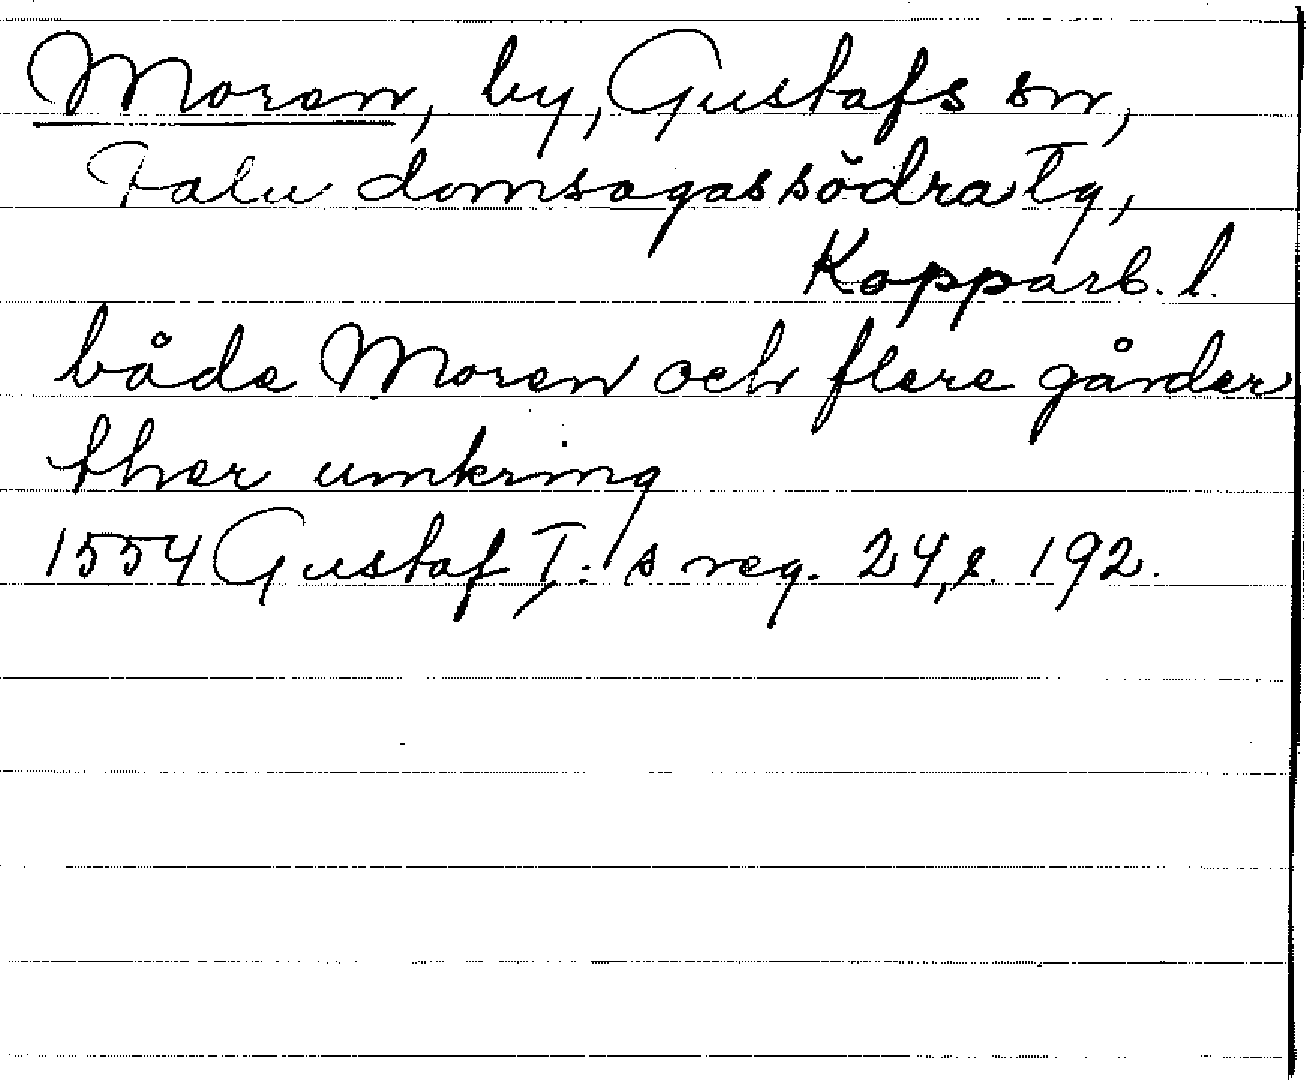 Moren, by, Gustafs sn,
Falu domsagas södra tg,
Kopparb. l.
både Moren och flere gårder
ther umkring
1554 Gustaf I:s reg. 24, s. 192.